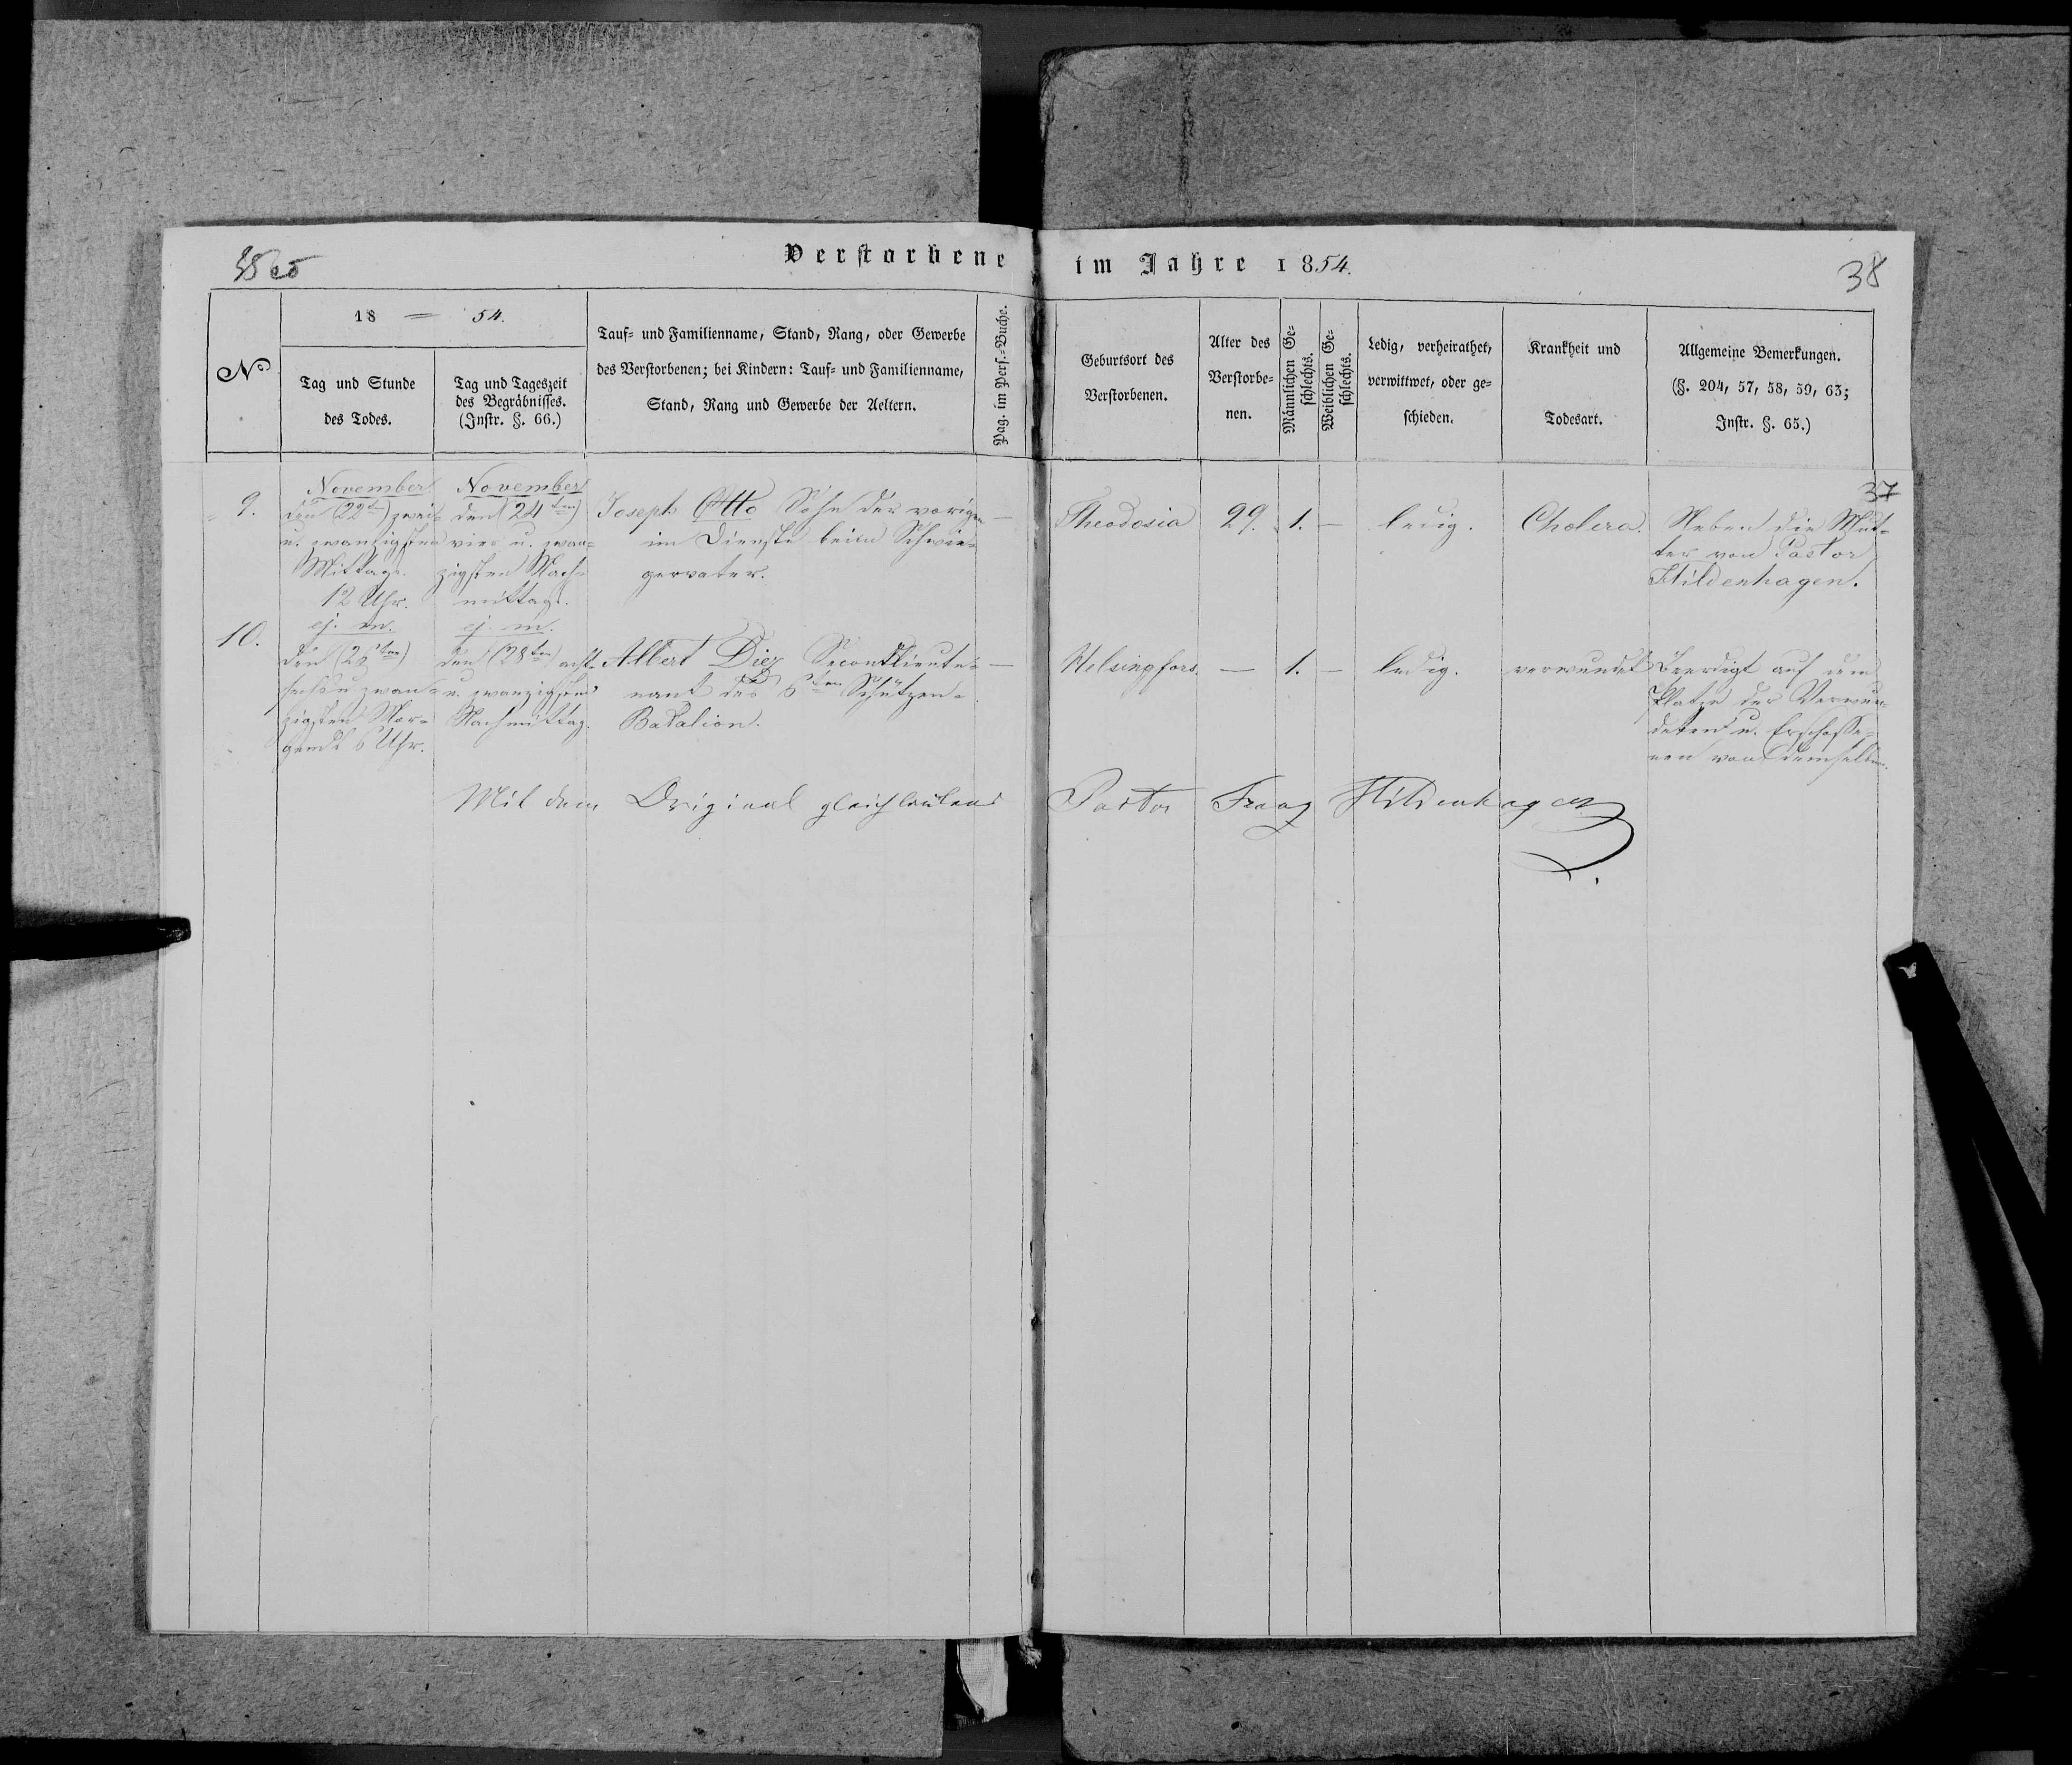 Verstorbene im Jahre 1854.
38
18 = 54.
No
Tag und Stunde
des Todes.
Tag und Tageszeit
des Begräbnisses.
(Instr. §. 66.)
Tauf= und Familienname, Stand, Rang, oder Gewerbe
des Verstorbenen; bei Kindern: Tauf= und Familienname,
Stand, Rang und Gewerbe der Aeltern.
Pag. im Pers.=Buche.
Geburtsort des
Verstorbenen.
Alter des
Verstorbe=
nen.
Männlichen Ge=
schlechts.
Weiblichen Ge=
schlechts.
Ledig, verheirathet,
verwittwet, oder ge=
schieden.
Krankheit und
Todesart.
Allgemeine Bemerkungen.
(§. 204, 57, 58, 59, 63;
Instr. §. 65.)
37
9.
November
den (22t) zwei=
u. zwanzigsten
Mittags.
12 Uhr.
November
den (24ten)
vier u. zwan=
zigsten Nach=
mittags.
Joseph Otto Sohn der vorigen
im Dienste beim Schwie=
gervater.
—
Theodosia
29.
1.
—
ledig.
Cholera.
Neben die Mut=
ter von Pastor
Hildenhagen.
10.
ej. m.
den (26ten)
sechs u zwan=
zigsten Mor=
gends 6 Uhr.
ej. m.
den (28ten) acht
u. zwanzigsten
Nachmittag.
Albert Diez Secondlieute=
nant des 6ten Schützen=
Batalion.
—
Helsingfors.
—
1.
—
ledig.
verwundet
Beerdigt auf dem
Platze der Verwun=
deten u. Erschosse=
nen von demselben.
Mit dem Original gleichlautend Pastor Franz Hildenhagen